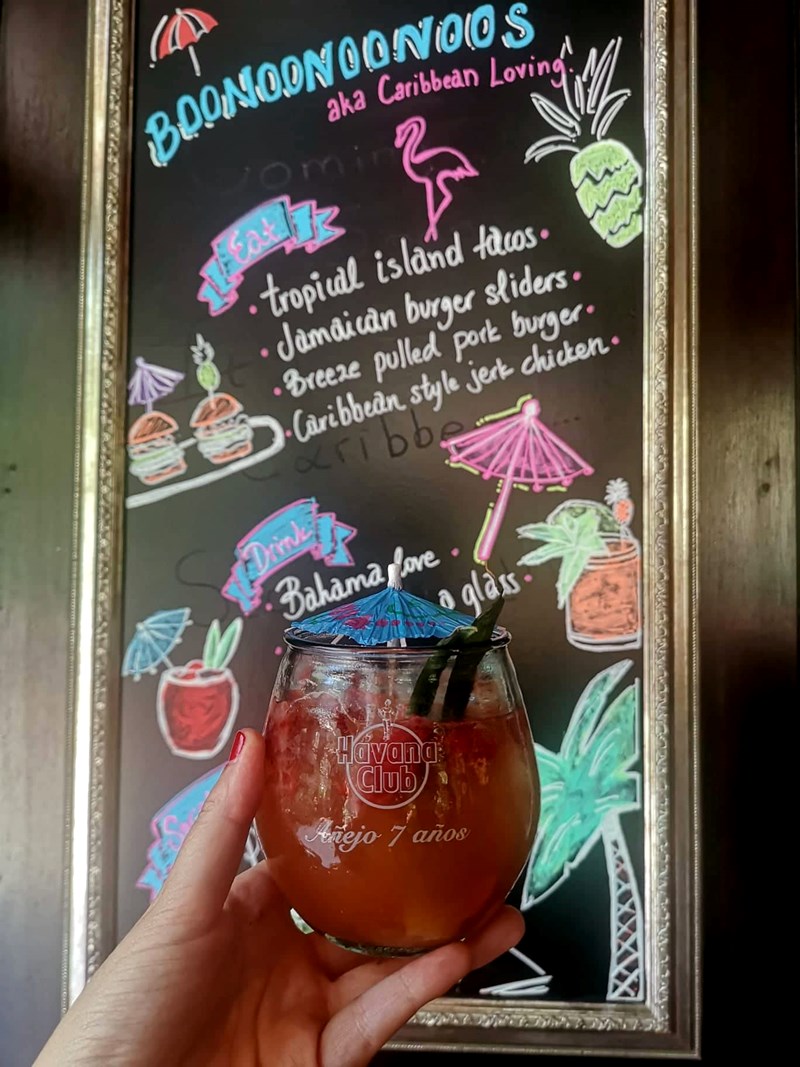 BOONOONOONOOS
aka Caribbean Loving
Eat
• tropical island tacos •
• Jamaican burger sliders •
• Breeze pulled pork burger •
• Caribbean style jerk chicken •
Drink
• Bahama Love •
glass •
Havana
Club
Añejo 7 años